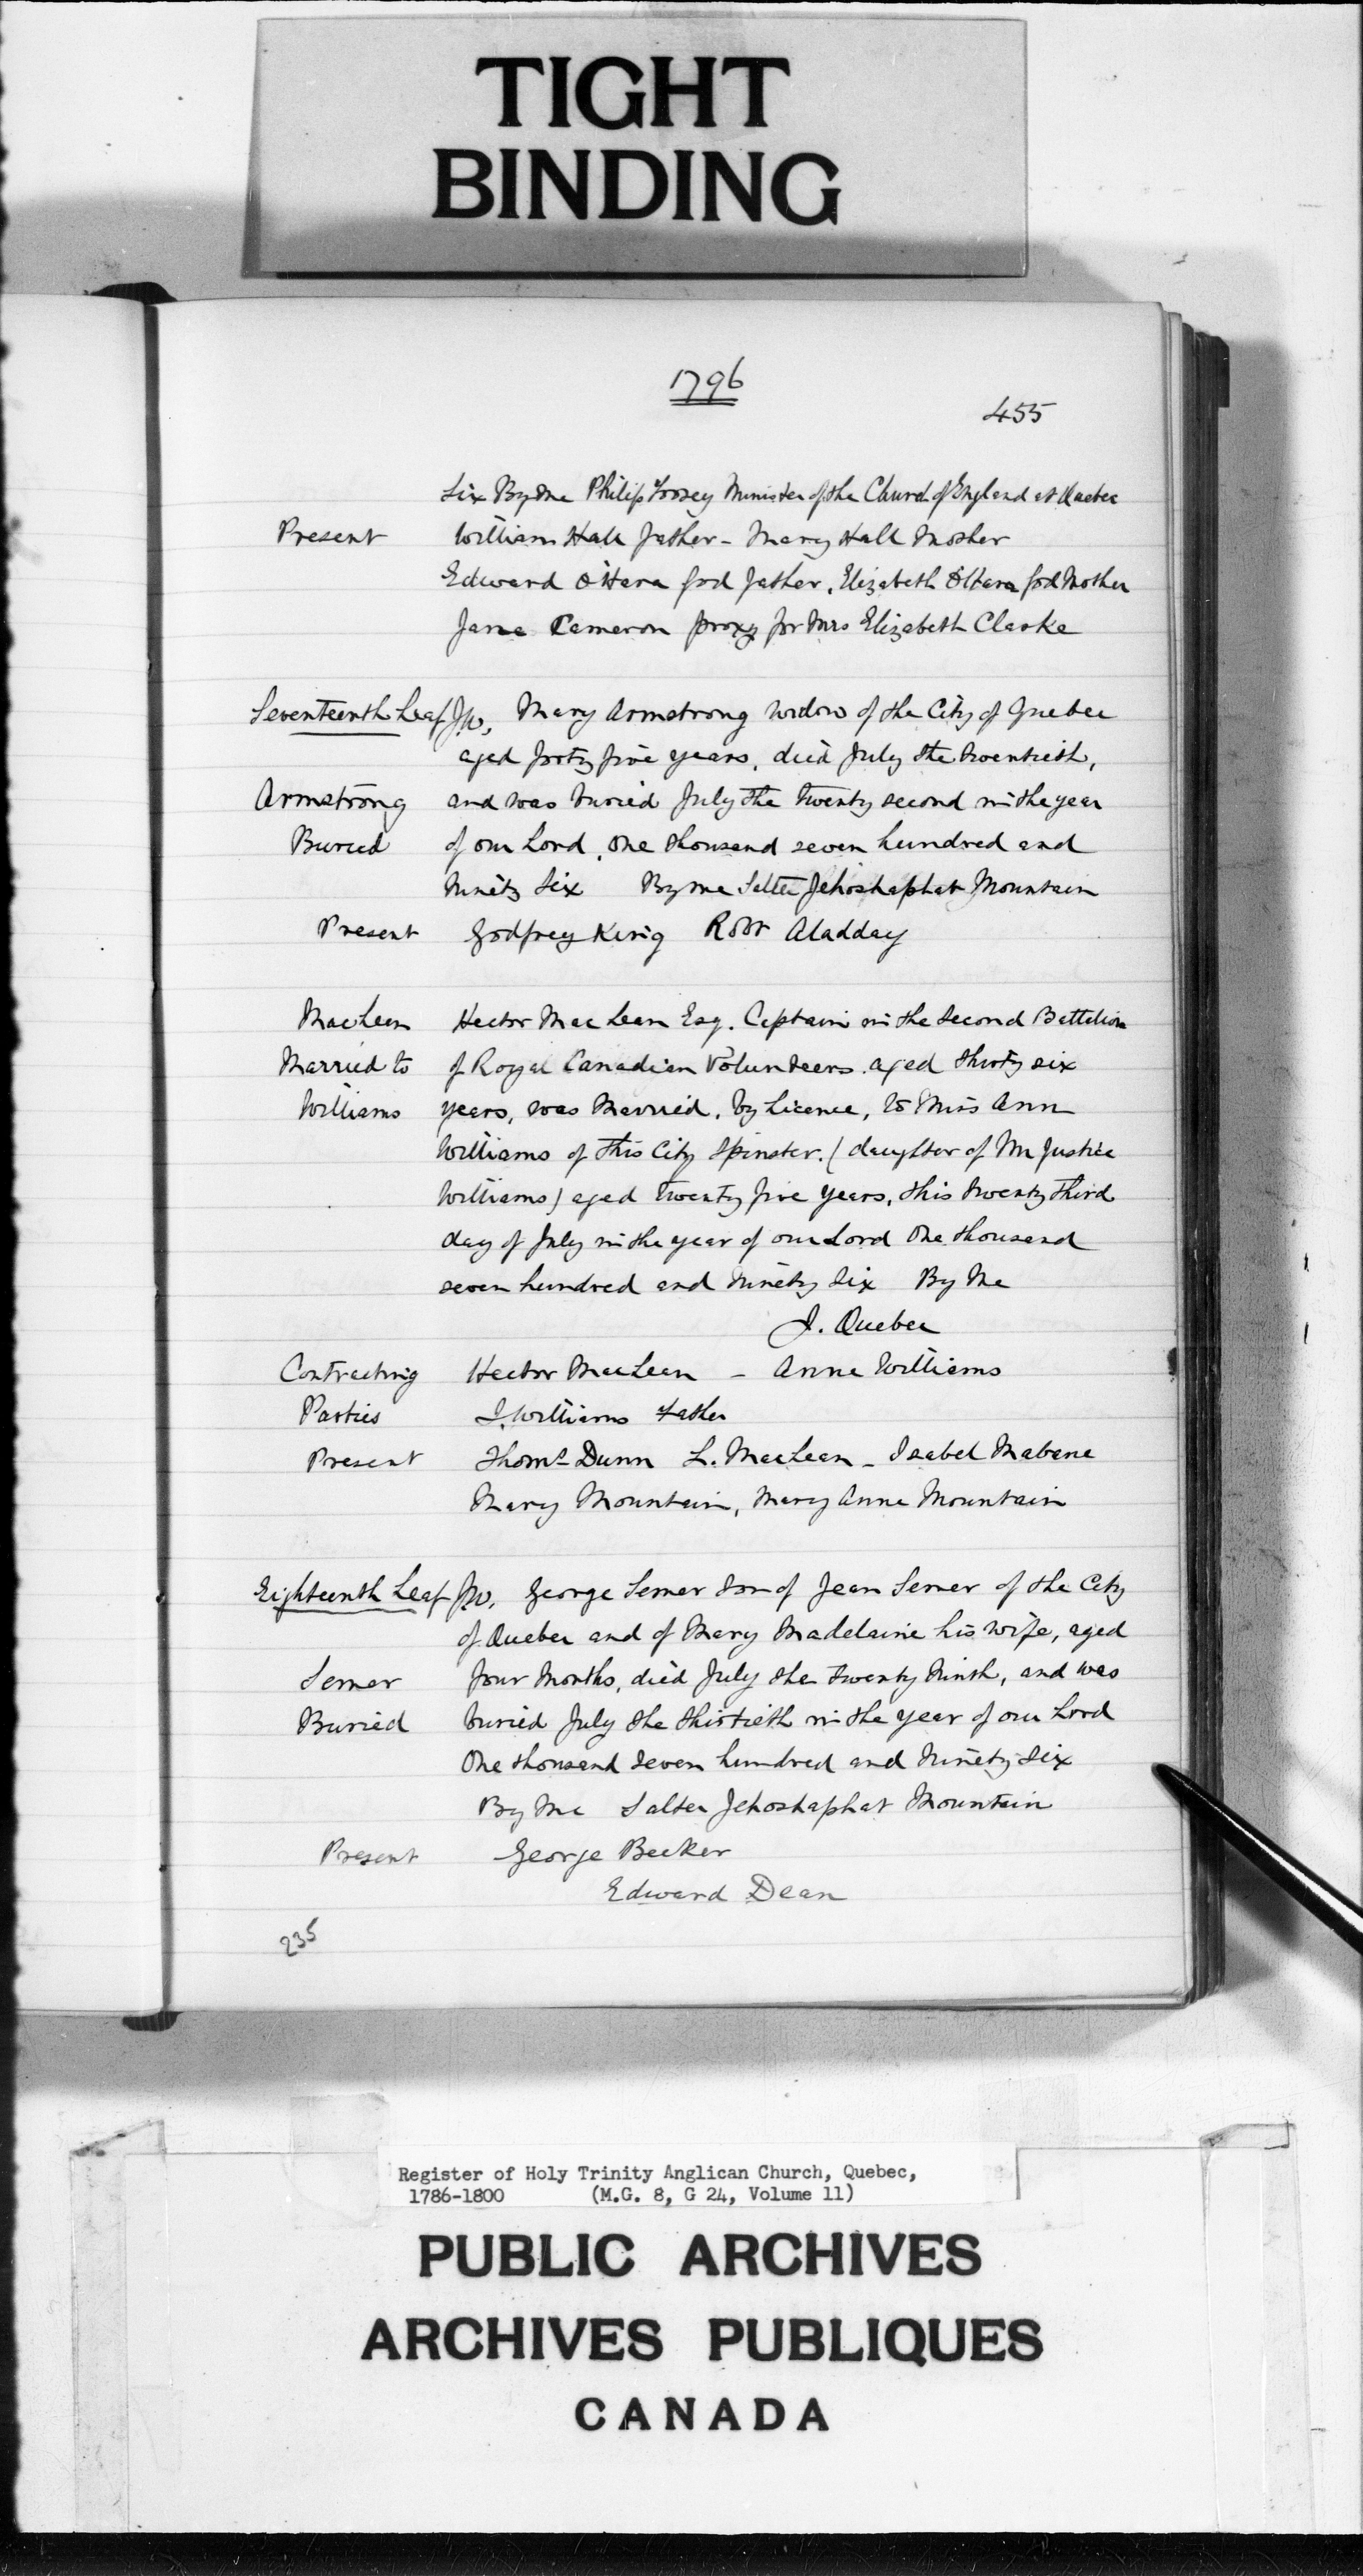 TIGHT
BINDING
1796
455
Six By Me Philip Toosey Minister of the Church of England at Quebec
Present William Hall father - Mary Hall Mother
Edward O'Hara God father, Elizabeth O'Hara God Mother
Jane Cameron proxy for Mrs Elizabeth Clarke
Seventeenth Leaf J.W. Mary Armstrong Widow of the City of Quebec
aged forty five years, died July the twentieth,
Armstrong and was buried July the twenty second in the year
Buried of our Lord, one thousand seven hundred and
Ninety Six By me Salter Jehoshaphat Mountain
Present Godfrey King Robt Aladday
MacLean Hector Mac Lean Esq. Captain in the Second Battalion
Married to of Royal Canadian Volunteers aged thirty six
Williams years, was Married, by Licence, to Miss Ann
Williams of this City Spinster. (daughter of Mr Justice
Williams) aged twenty five years, this twenty third
day of July in the year of our Lord One thousand
seven hundred and Ninety Six By Me
J. Quebec
Contracting Hector MacLean - Anne Williams
Parties J. Williams Father
Present Thoms Dunn L. MacLean - Isabel Mabane
Mary Mountain, Mary Anne Mountain
Eighteenth Leaf J.W. George Serner Son of Jean Serner of the City
of Quebec and of Mary Madelaine his wife, aged
Serner four Months, died July the twenty Ninth, and was
Buried buried July the thirtieth in the year of our Lord
One thousand seven hundred and Ninety Six
By Me Salter Jehoshaphat Mountain
Present George Becker
Edward Dean
235
Register of Holy Trinity Anglican Church, Quebec,
1786-1800 (M.G. 8, G 24, Volume 11)
PUBLIC ARCHIVES
ARCHIVES PUBLIQUES
CANADA